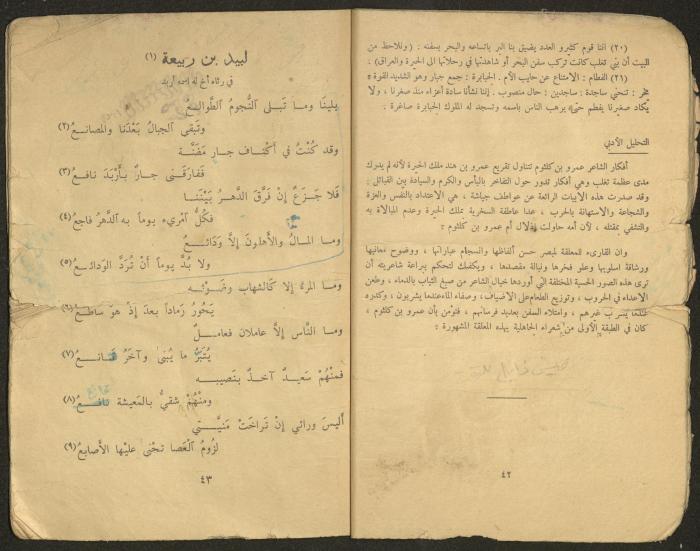 (٢٠) اننا قوم كثيرو العدد يضيق بنا البر باتساعه والبحر بسفنه : (ونلاحظ من
البيت أن بني تغلب كانت تركب سفن البحر أو شاهدتها في رحلاتها الى الحيرة والعراق) :
(٢١) الفطام : الامتناع عن حليب الأم . الجبابرة : جمع جبار وهو الشديد القوة
تخر : تنحني ساجدة : ساجدين : حال منصوب . إننا نشأنا سادة أعزاء منذ صغرنا ، ولا
يكاد صغيرنا يفطم حتى يرهب الناس باسمه وتسجد له الملوك الجبابرة صاغرة :
التحليل الأدبي
أفكار الشاعر عمرو بن كلثوم تتناول تقريع عمرو بن هند ملك الحيرة لأنه لم يدرك
مدى عظمة تغلب وهي أفكار تدور حول التفاخر بالبأس والكرم والسيادة بين القبائل :
وقد صدرت هذه الأبيات الرائعة عن عواطف جياشة ، هي الاعتداد بالنفس والعزة
والشجاعة والاستهانة بالحرب ، عدا عاطفة السخرية بملك الحيرة وعدم المبالاة به
والتشفي بمقتله ، لأن أمه حاولت إذلال أم عمرو بن كلثوم :
وان القارىء للمعلقة ليبصر حسن ألفاظها وانسجام عباراتها ، ووضوح معانيها
ورشاقة اسلوبها وعلو فخرها ونبالة مقصدها ، ويكفيك لتحكم ببراعة شاعريته أن
ترى هذه الصور الحسية المختلفة التي أوردها خيال الشاعر من صبغ الثياب بالدماء ، وطعن
الاعداء في الحروب ، وتوزيع الطعام على الاضياف ، وصفاء الماء عندما يشربون ، وكدره
عندما يشرب غيرهم ، وامتلاء السفن بعديد فرسانهم ، فتؤمن بأن عمرو بن كلثوم ،
كان في الطبقة الأولى من شعراء الجاهلية بهذه المعلقة المشهورة :
٤٢
لبيد بن ربيعة (١)
في رثاء أخ له اسمه أربد
بلينا وما تبلى النجوم الطوالع
وتبقى الجبال بعدنا والمصانع (٢)
وقد كنت في أكناف جار مضنة
ففارقني جار بأربد نافع (٣)
فلا جزع إن فرق الدهر بيننا
فكل امرىء يوماً به الدهر فاجع (٤)
وما المال والأهلون إلا ودائع
ولا بد يوماً أن ترد الودائع (٥)
وما المرء إلا كالشهاب وضوئه
يحور رماداً بعد إذ هو ساطع (٦)
وما الناس إلا عاملان فعامل
يتبر ما يبنى وآخر (٧)
فمنهم سعيد آخذ بنصيبه
ومنهم شقي بالمعيشة (٨)
أليس ورائي إن تراخت منيتي
لزوم العصا تحنى عليها الأصابع (٩)
٤٣